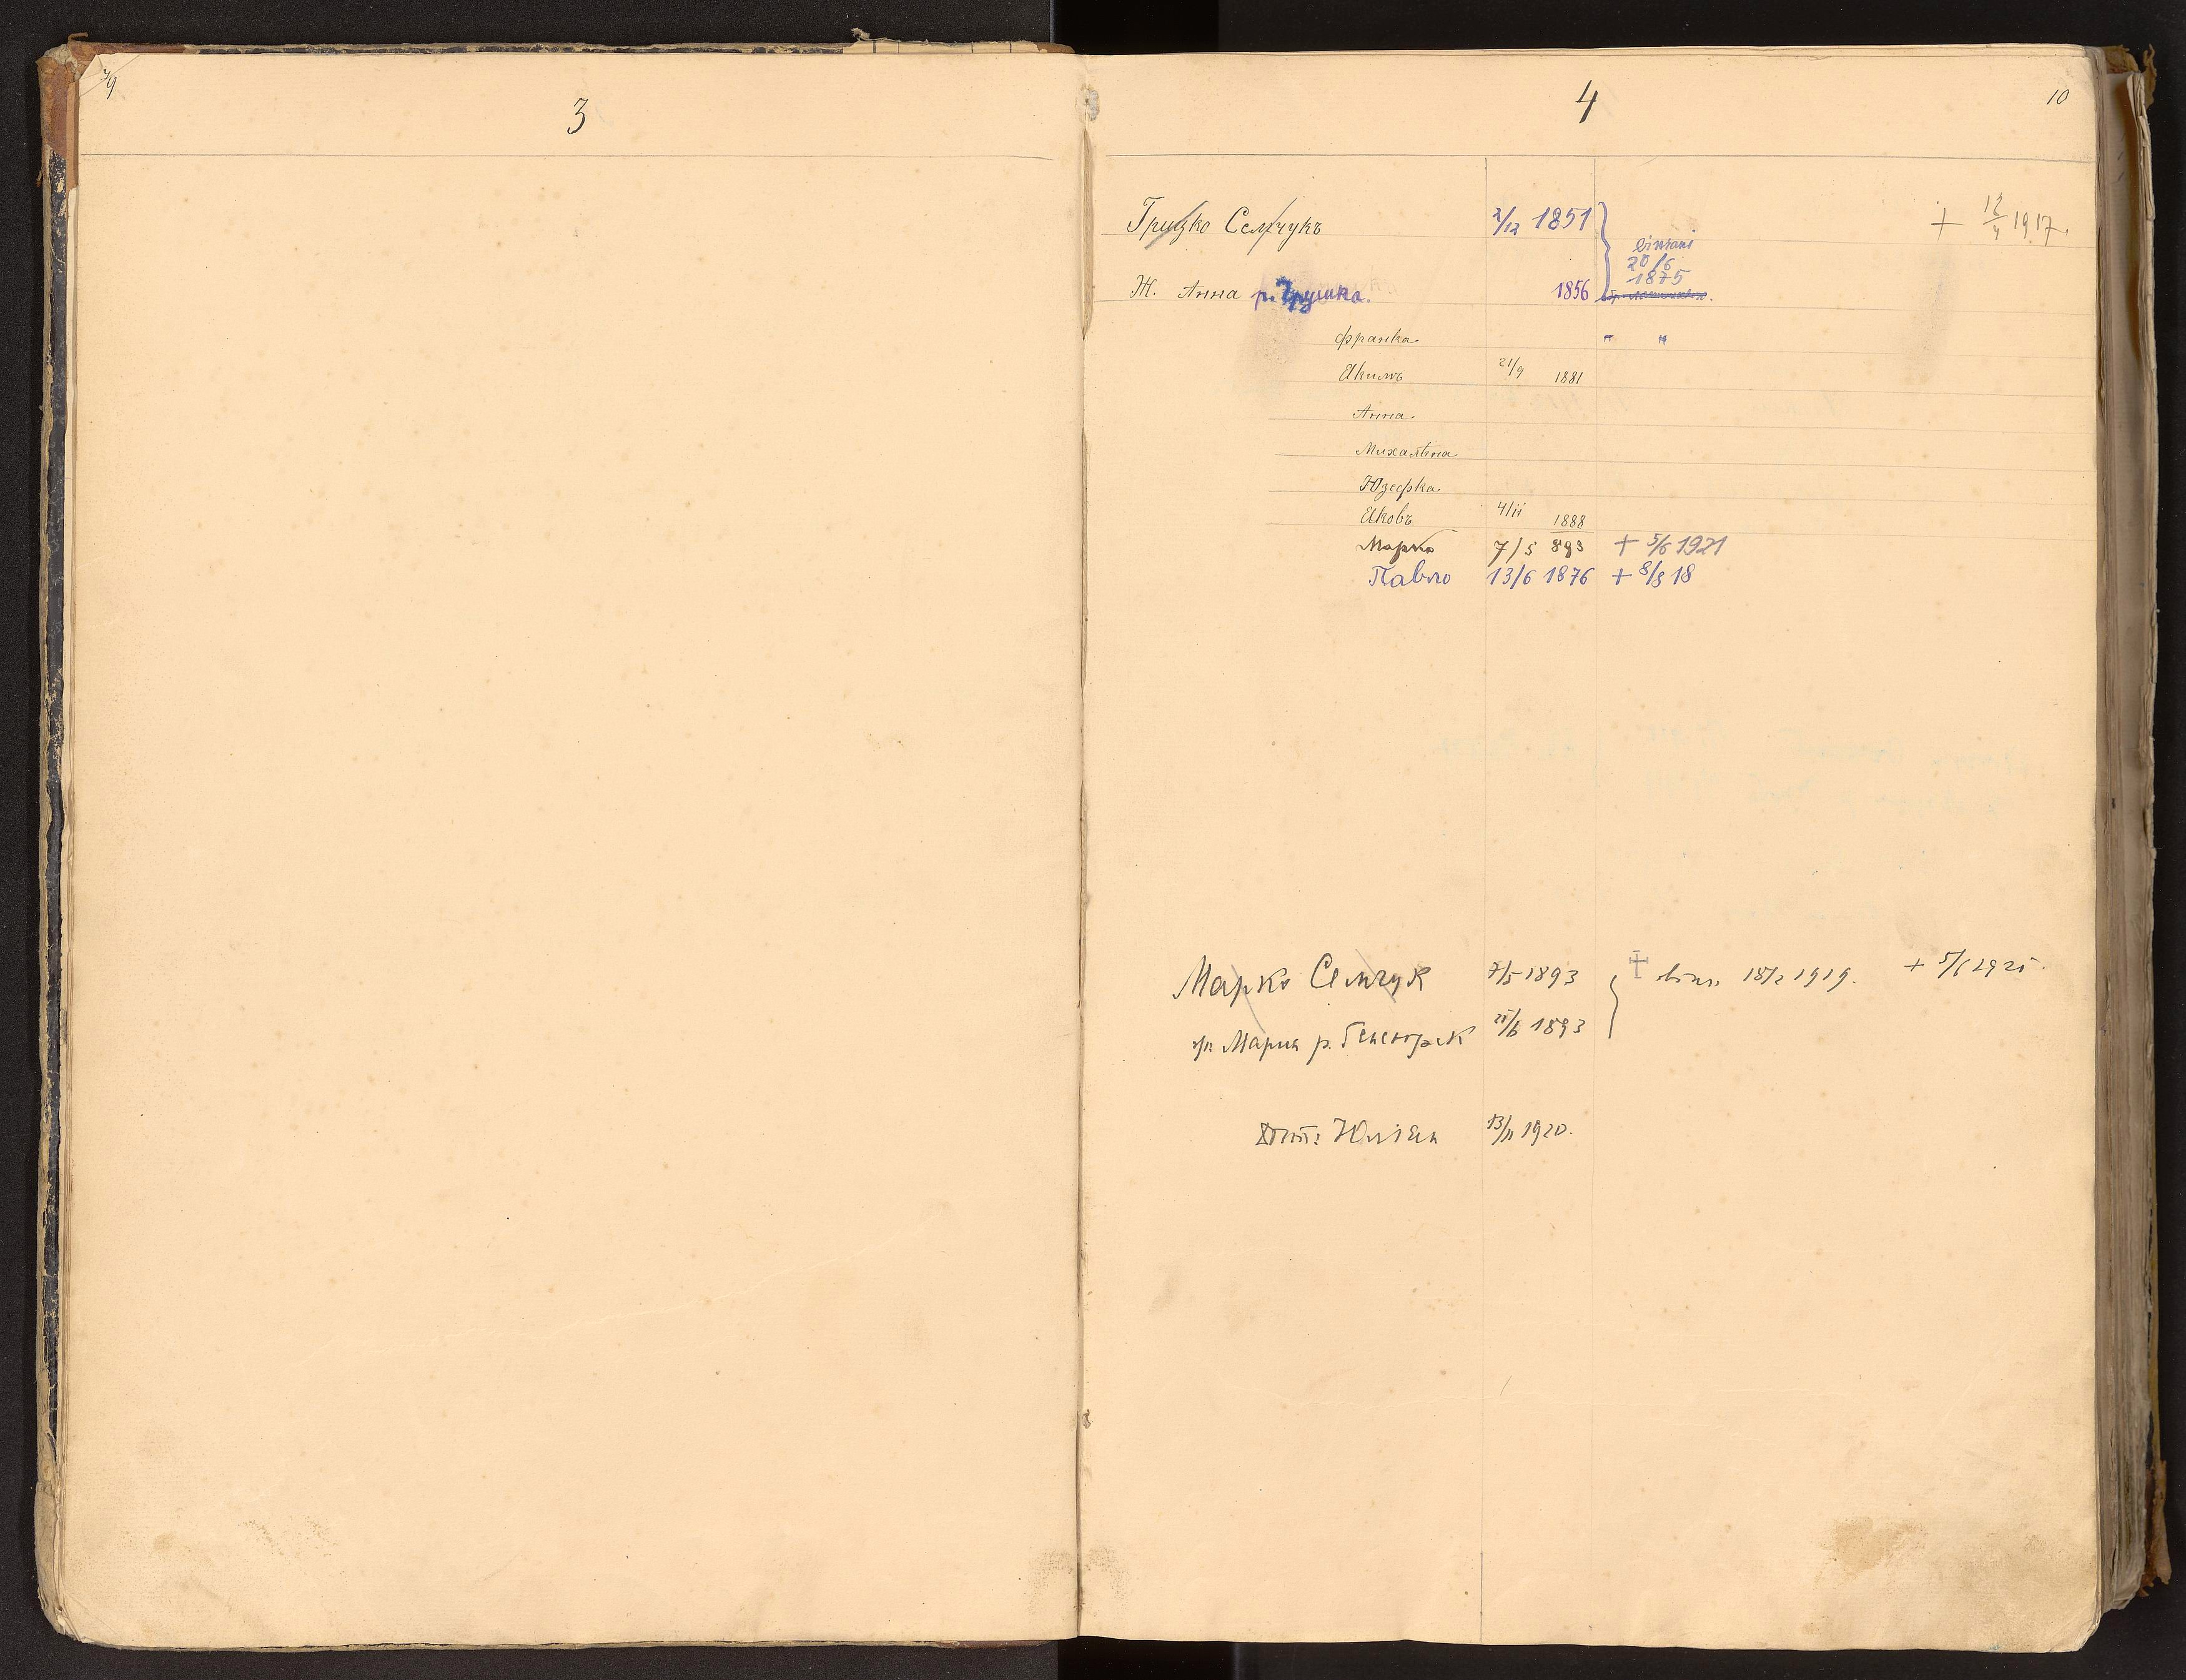 9
3
4
10
Грицко Семчукъ 2/12 1851 + 12/4 1917.
вінчані
20/6
1875
Ж. Анна р. Грушка. 1856
Франка " "
Якимъ 21/9 1881
Анна.
Михалина
Юзефка.
Яковъ 4/11 1888
Марко 7/5 893 + 5/6 1921
Павло 13/6 1876 + 8/8 18
Марко Семчук 7/5 1893 вінч. 18/2 1919. +
Мария р. 1893
Юліян 13/11 1920.